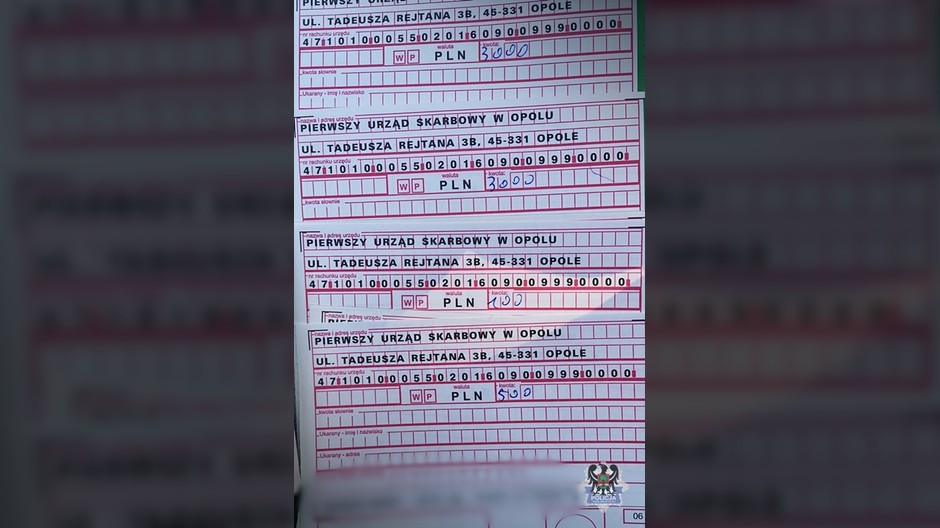 UL. TADEUSZA REJTANA 3B, 45-331 OPOLE
nr rachunku urzędu
47101000550201609009990000
waluta kwota:
WP PLN 3000
kwota słownie
Ukarany - imię i nazwisko
nazwa i adres urzędu
PIERWSZY URZĄD SKARBOWY W OPOLU
UL. TADEUSZA REJTANA 3B, 45-331 OPOLE
nr rachunku urzędu
47101000550201609009990000
waluta kwota:
WP PLN 3000
kwota słownie
nazwa i adres urzędu
PIERWSZY URZĄD SKARBOWY W OPOLU
UL. TADEUSZA REJTANA 3B, 45-331 OPOLE
nr rachunku urzędu
47101000550201609009990000
waluta kwota:
WP PLN 100
nazwa i adres urzędu
nazwa i adres urzędu
PIERWSZY URZĄD SKARBOWY W OPOLU
UL. TADEUSZA REJTANA 3B, 45-331 OPOLE
nr rachunku urzędu
47101000550201609009990000
waluta kwota:
WP PLN 500
kwota słownie
Ukarany - imię i nazwisko
Ukarany - adres
POLICJA
06